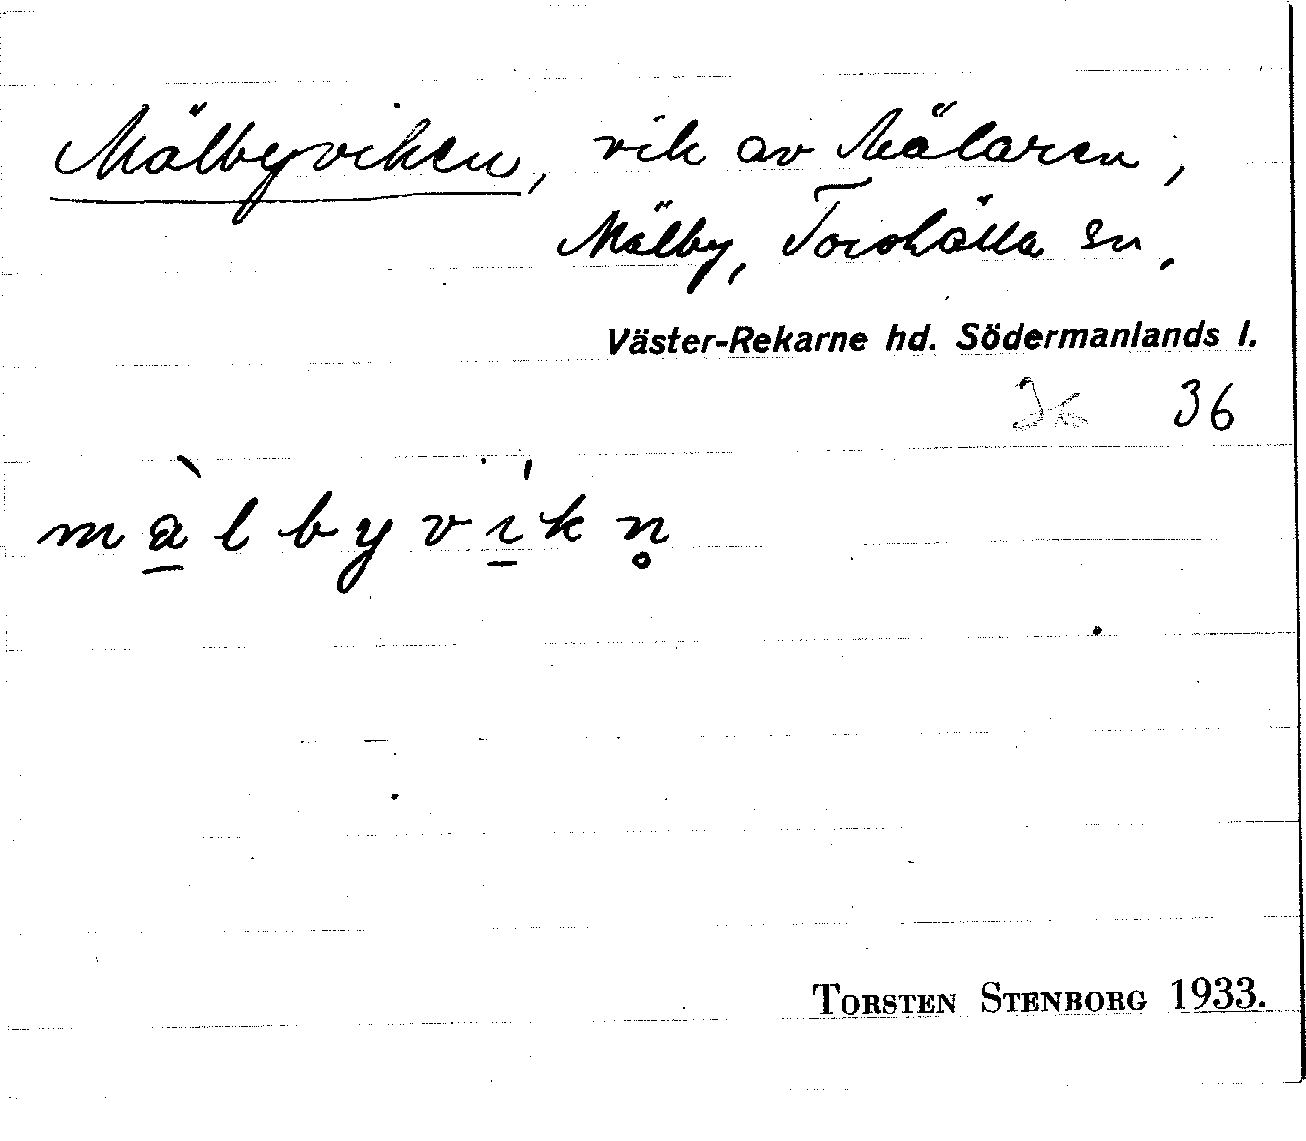 Mälbyviken, vik av Mälaren,
Mälby, Torshälla sn,
Väster-Rekarne hd. Södermanlands l.
36
màlbyvíkn̥
TORSTEN STENBORG 1933.